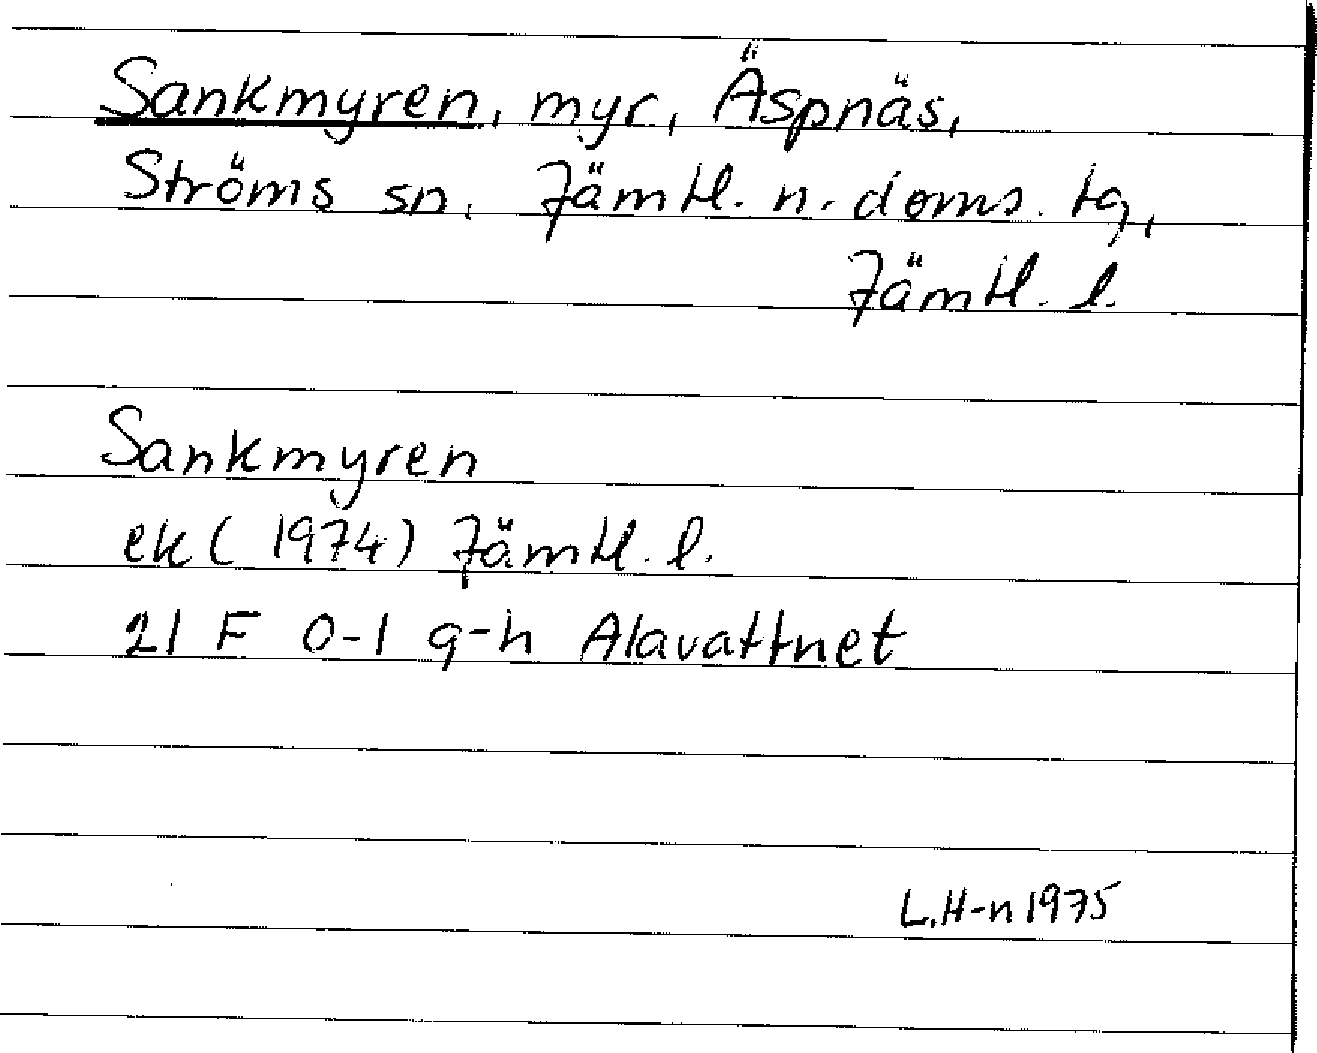 Sankmyren, myr, Äspnäs,
Ströms sn. Jämtl. n. doms. tg,
Jämtl. l.
Sankmyren
ek (1974) Jämtl. l.
21 F 0-1 g-h Alavattnet
L.H-n 1975